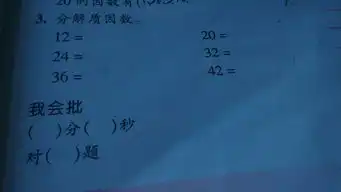 20的因数有(
3. 分解质因数。
12=
20=
24=
32=
36=
42=
我会批
( )分( )秒
对( )题